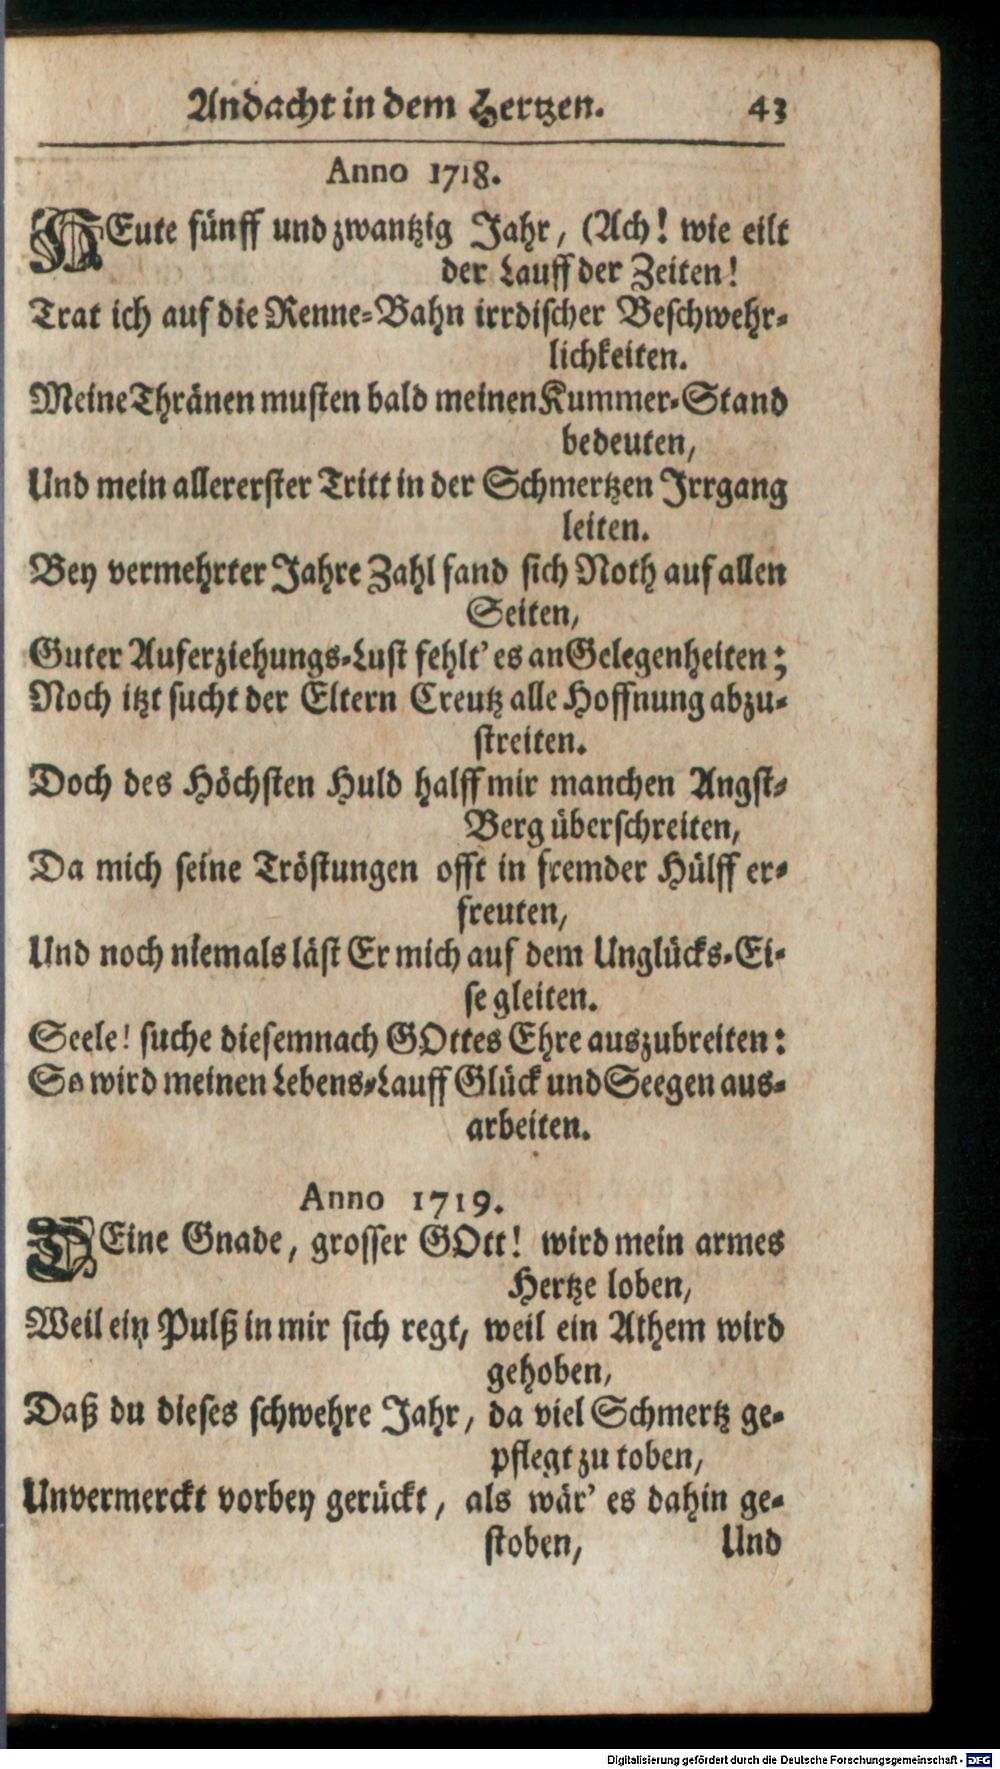 Andacht in dem Hertzen. 43
Anno 1718.
HEute fünff und zwantzig Jahr, (Ach! wie eilt
der Lauff der Zeiten!
Trat ich auf die Renne-Bahn irrdischer Beschwehr-
lichkeiten.
Meine Thränen musten bald meinen Kummer-Stand
bedeuten,
Und mein allererster Tritt in der Schmertzen Irrgang
leiten.
Bey vermehrter Jahre Zahl fand sich Noth auf allen
Seiten,
Guter Auferziehungs-Lust fehlt' es an Gelegenheiten;
Noch itzt sucht der Eltern Creutz alle Hoffnung abzu-
streiten.
Doch des Höchsten Huld halff mir manchen Angst-
Berg überschreiten,
Da mich seine Tröstungen offt in fremder Hülff er-
freuten,
Und noch niemals läst Er mich auf dem Unglücks-Ei-
se gleiten.
Seele! suche diesemnach GOttes Ehre auszubreiten:
So wird meinen Lebens-Lauff Glück und Seegen aus-
arbeiten.
Anno 1719.
DEine Gnade, grosser GOtt! wird mein armes
Hertze loben,
Weil ein Pulß in mir sich regt, weil ein Athem wird
gehoben,
Daß du dieses schwehre Jahr, da viel Schmertz ge-
pflegt zu toben,
Unvermerckt vorbey gerückt, als wär' es dahin ge-
stoben, Und
Digitalisierung gefördert durch die Deutsche Forschungsgemeinschaft - DFG